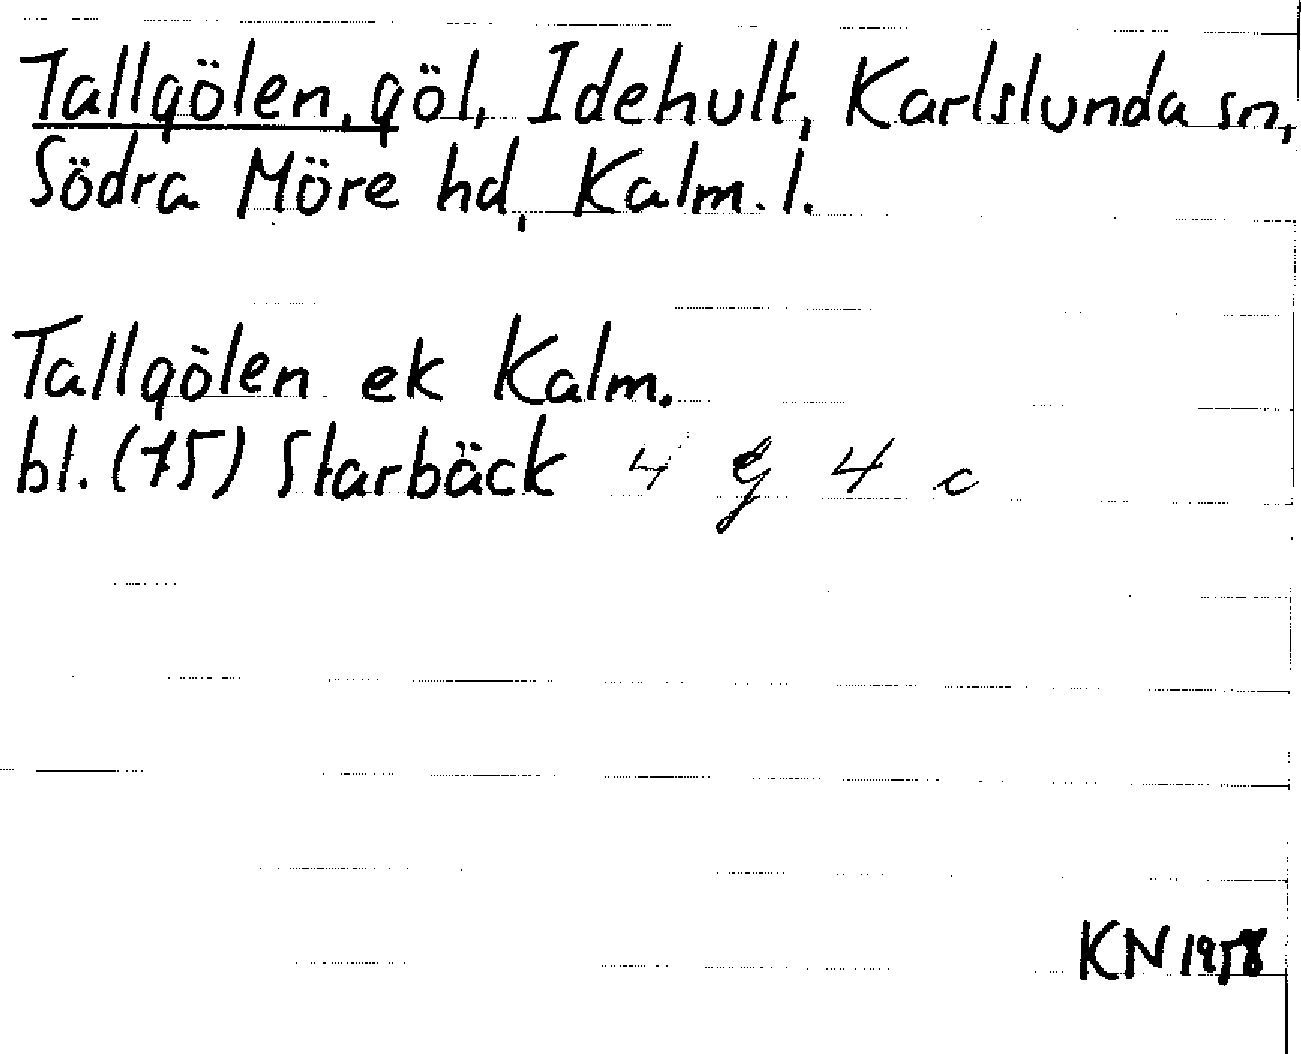 Tallgölen, göl, Idehult, Karlslunda sn,
Södra Möre hd, Kalm. l.
Tallgölen ek Kalm.
bl. (75) Starbäck 4 g 4 c
KN 1958